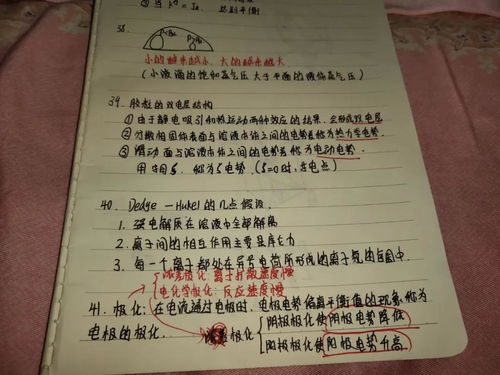 ③ 当 = Je. 达到平衡
38.
小的越来越小、大的越来越大
(小液滴的饱和蒸气压大于平面的液体蒸气压)
39. 胶粒的双电层结构
① 由于静电吸引和热运动两种效应的结果, 会形成双电层
② 分散相固体表面与溶液本体之间的电势差称为热力学电势.
③ 滑动面与溶液本体之间的电势差称为电动电势.
用符号ζ. 称为ζ电势. (ζ=0时, 等电点)
40. Dedye — Hukel的几点假设.
1. 强电解质在溶液中全部解离
2. 离子间的相互作用主要是库仑力
3. 每一个离子都处在异号电荷所形成的离子氛的包围中.
浓差极化: 离子扩散速度慢
电化学极化: 反应速度慢
41. 极化: 在电流通过电极时, 电极电势偏离平衡值的现象称为
电极的极化. 极化
阴极极化使阴极电势降低
阳极极化使阳极电势升高